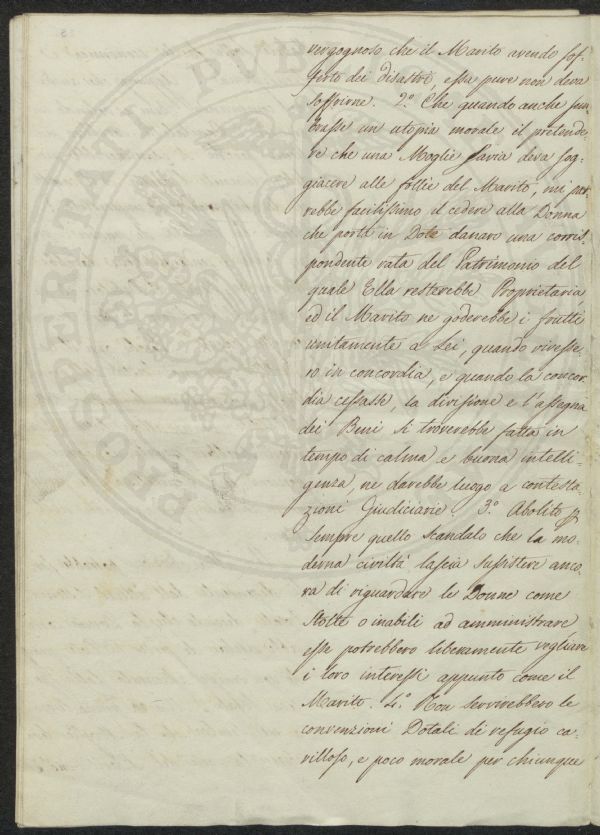 vergognoso che il Marito avendo sof-
ferto dei disastri, essa pure non deva
soffrirne. 2.º Che quando anche sem
brasse un utopia morale il pretende-
re che una Moglie savia deva sog-
giacere alle follie del Marito, mi par-
rebbe facilissimo il cedere alla Donna
che porta in Dote danaro una corris-
pondente rata del Patrimonio del
quale Ella resterebbe Proprietaria
ed il Marito ne goderebbe i frutti
unitamente a Lei, quando vivesse-
ro in concordia, e quando la concor-
dia cessasse, la divisione e l'assegna
dei Beni si troverebbe fatta in
tempo di calma e buona intelli-
genza, ne darebbe luogo a contesta-
zioni Giudiciarie. 3.º Abolito p
sempre quello scandalo che la mo-
derna civiltà lascia sussistere anco-
ra di riguardare le Donne come
stolte o inabili ad amministrare
esse potrebbero liberamente vegliare
i loro interessi appunto come il
Marito. 4.º Non servirebbero le
convenzioni Dotali di refugio ca-
villoso, e poco morale per chiunque